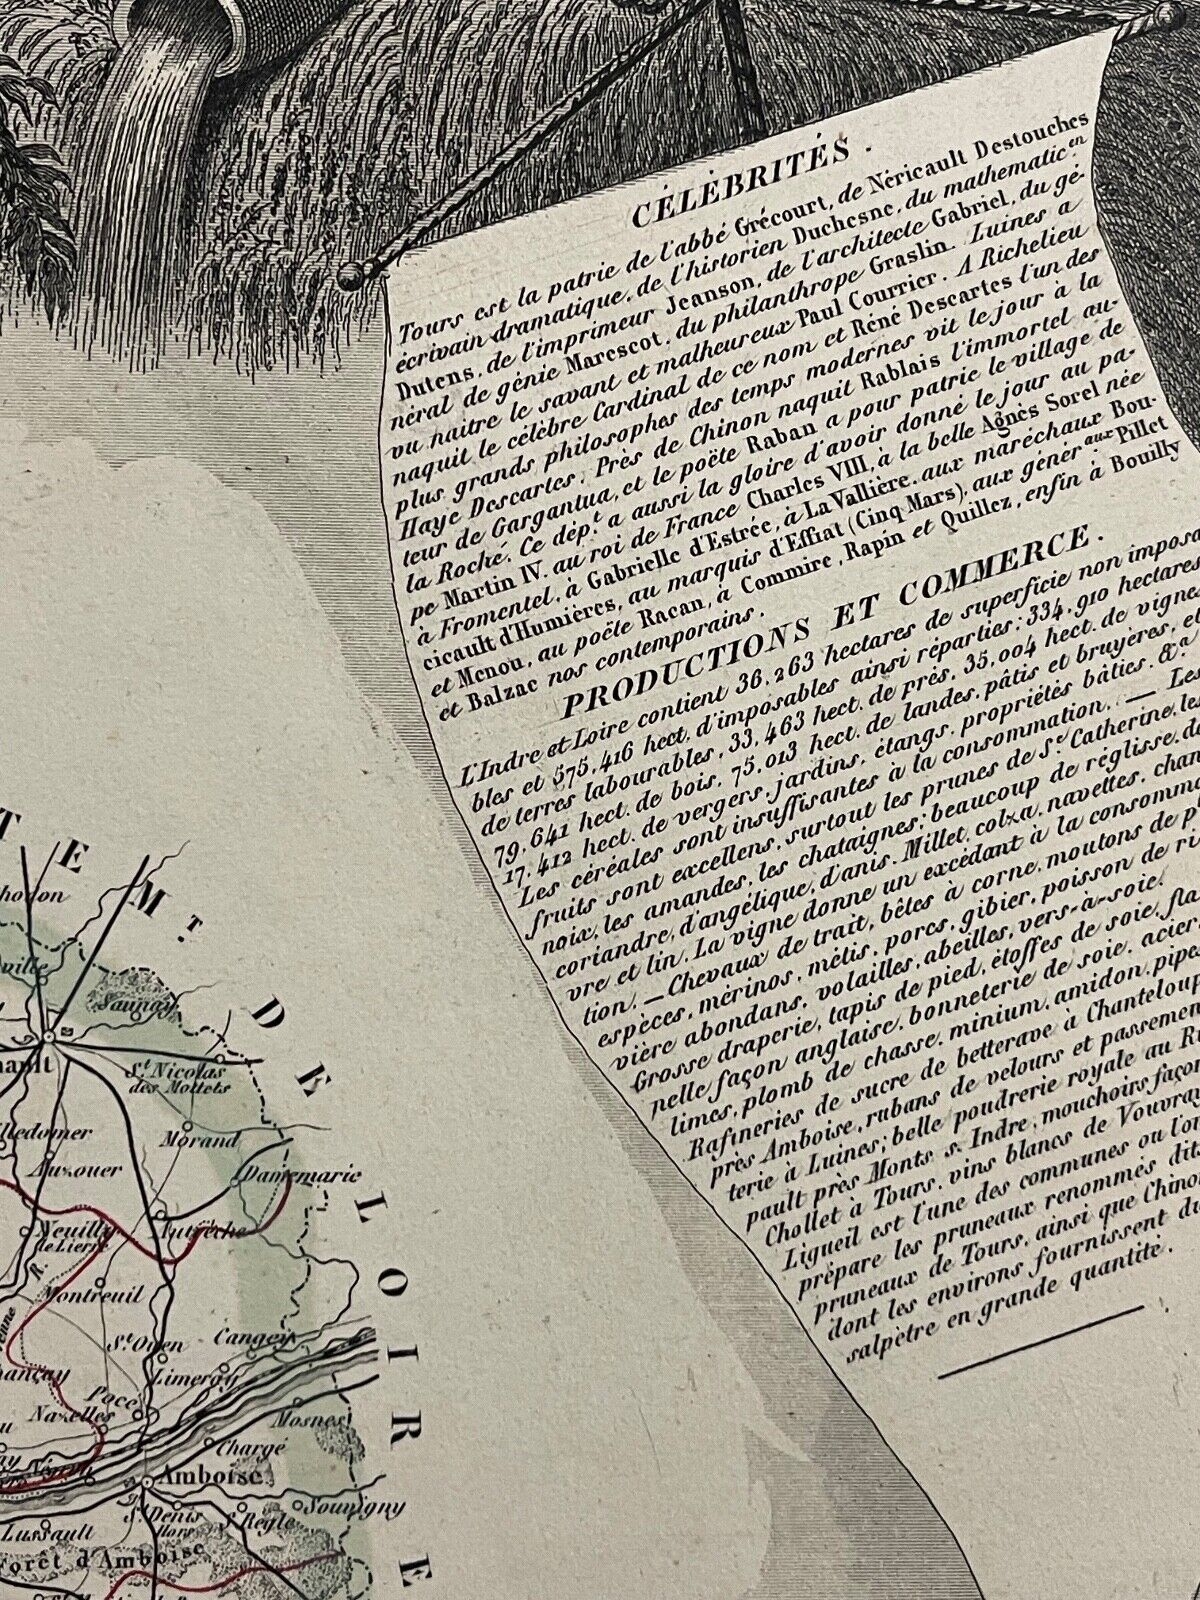 CÉLÉBRITÉS.
Tours est la patrie de l'abbé Grécourt, de Néricault Destouches
écrivain dramatique, de l'historien Duchesne, du mathematic.en
Dutens, de l'imprimeur Jeanson, de l'architecte Gabriel, du gé-
néral de génie Marescot, du philanthrope Graslin. Luines a
vu naitre le savant et malheureux Paul Courrier. A Richelieu
naquit le célèbre Cardinal de ce nom et Réné Descartes l'un des
plus grands philosophes des temps modernes vit le jour à la
Haye Descartes. Près de Chinon naquit Rablais l'immortel au-
teur de Gargantua, et le poëte Raban a pour patrie le village de
la Roche. Ce dép.t a aussi la gloire d'avoir donné le jour au pa-
pe Martin IV. au roi de France Charles VIII, à la belle Agnès Sorel née
à Fromentel, à Gabrielle d'Estrée, à La Vallière, aux maréchaux Bou-
cicault d'Humières, au marquis d'Effiat (Cinq Mars), aux génér.aux Pillet
et Menou, au poëte Racan, à Commire, Rapin et Quillez, enfin à Bouilly
et Balzac nos contemporains.
PRODUCTIONS ET COMMERCE.
L'Indre et Loire contient 36,263 hectares de superficie non imposa
bles et 575,416 hect. d'imposables ainsi réparties: 334,910 hectares
de terres labourables, 33,463 hect. de prés, 35,004 hect. de vignes
79,641 hect. de bois, 75,013 hect. de landes, pâtis et bruyères, et
17,412 hect. de vergers, jardins, étangs, propriétés bâties, &.a
Les céréales sont insuffisantes à la consommation. — Les
fruits sont excellens, surtout les prunes de S.te Catherine, les
noix, les amandes, les chataignes; beaucoup de réglisse, de
coriandre, d'angélique, d'anis. Millet, colza, navettes, chan
vre et lin. La vigne donne un excédant à la consomma
tion. — Chevaux de trait, bêtes à corne, moutons de p
espèces, mérinos, métis, porcs, gibier, poisson de ri
vière abondans, volailles, abeilles, vers-à-soie.
Grosse draperie, tapis de pied, étoffes de soie, fla
nelle façon anglaise, bonneterie de soie, acier
limes, plomb de chasse, minium, amidon, pipes
Rafineries de sucre de betterave à Chanteloup
près Amboise, rubans de velours et passemen
terie à Luines; belle poudrerie royale au Ri
pault près Monts s. Indre, mouchoirs façon
Chollet à Tours, vins blancs de Vouvray
Ligueil est l'une des communes ou l'on
prépare les pruneaux renommés dits
pruneaux de Tours, ainsi que Chinon
dont les environs fournissent du
salpètre en grande quantité.
TEM.T
DE LOIRE
hodon
ville
Saunay
nault
S.t Nicolas
des Mottets
lledomer
Morand
Auzouer
Damemarie
Neuilly
de Lierre
Autrèche
R.
Montreuil
enne
S.t Ouen
Cangey
hançay
Limeray
Pocé
Nazelles
Mosnes
Chargé
Négron
Amboise
S.t Denis
Hors
S.t Regle
Souvigny
Lussault
Forêt d'Amboise